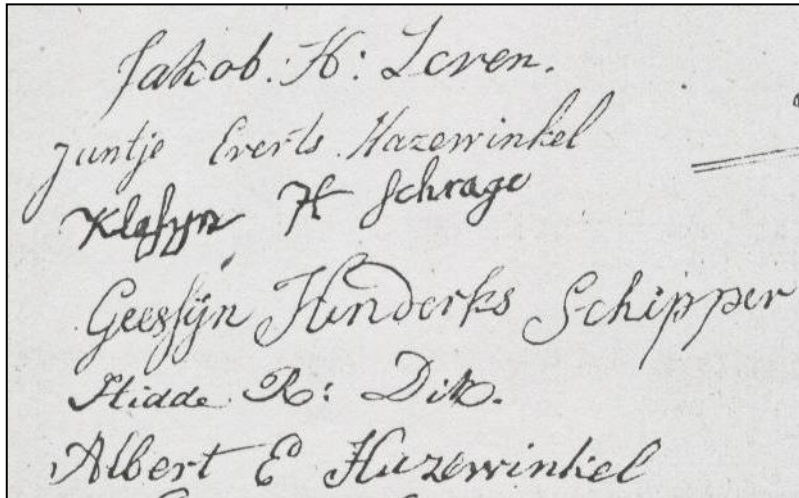 Jakob. H: Leven.
Juntje Everts Hazewinkel
Klaſyn H Schrage
Geesſijn Hinderks Schipper
Hidde R: Dik.
Albert E Hazewinkel